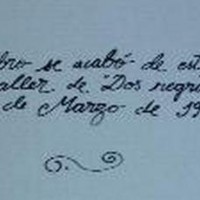 bro se acabó de est
aller de "Dos negri
de Marzo de 19